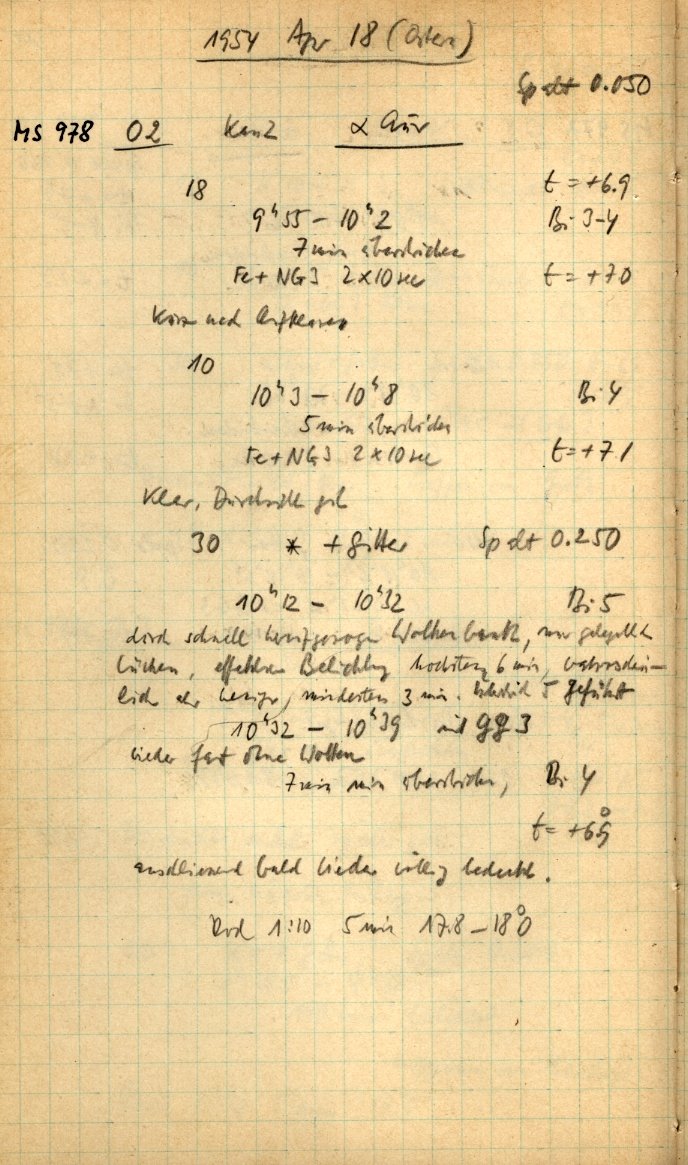 1954 Apr 18 (Ostern)
Spalt 0.050
MS 978 02 Kam2 α Aur
18 t = +6.9
9ʰ55 – 10ʰ2 Bi 3-4
7 min überstrichen
Fe + NG3 2×10 sec t = +7.0
Kurz nach Aufklaren
10
10ʰ3 – 10ʰ8 Bi 4
5 min überstrichen
Fe + NG3 2×10 sec t = +7.1
Klar, Durchsicht gut
30 * + Gitter Spalt 0.250
10ʰ12 – 10ʰ32 Bi 5
durch schnell heraufgezogene Wolkenbank, nur gelegentlich
Lücken, effektive Belichtung höchstens 6 min, wahrschein-
lich eher weniger, mindestens 3 min. 5 geführt
10ʰ32 – 10ʰ39 mit GG 3
wieder fast ohne Wolken
7 min überstrichen, Bi 4
t = +6.9°
anschliessend bald wieder völlig bedeckt.
Rod 1:10 5 min 17.8 – 18.0°